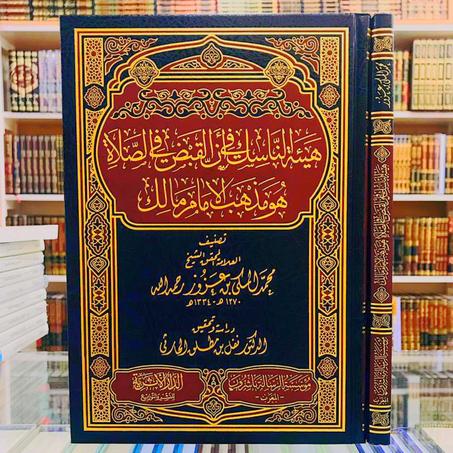 هيئة الناسك في أن القبض في الصلاة
هو مذهب الإمام مالك
تصنيف
العلامة المحقق الشيخ
محمد المكي بن عزوز رحمه الله
١٢٧٠هـ - ١٣٣٤هـ
دراسة وتحقيق
الدكتور نفل بن مطلق الحارثي
مؤسسة الرسالة ناشرون
- المغرب -
الدار الأثرية
للنشر والتوزيع